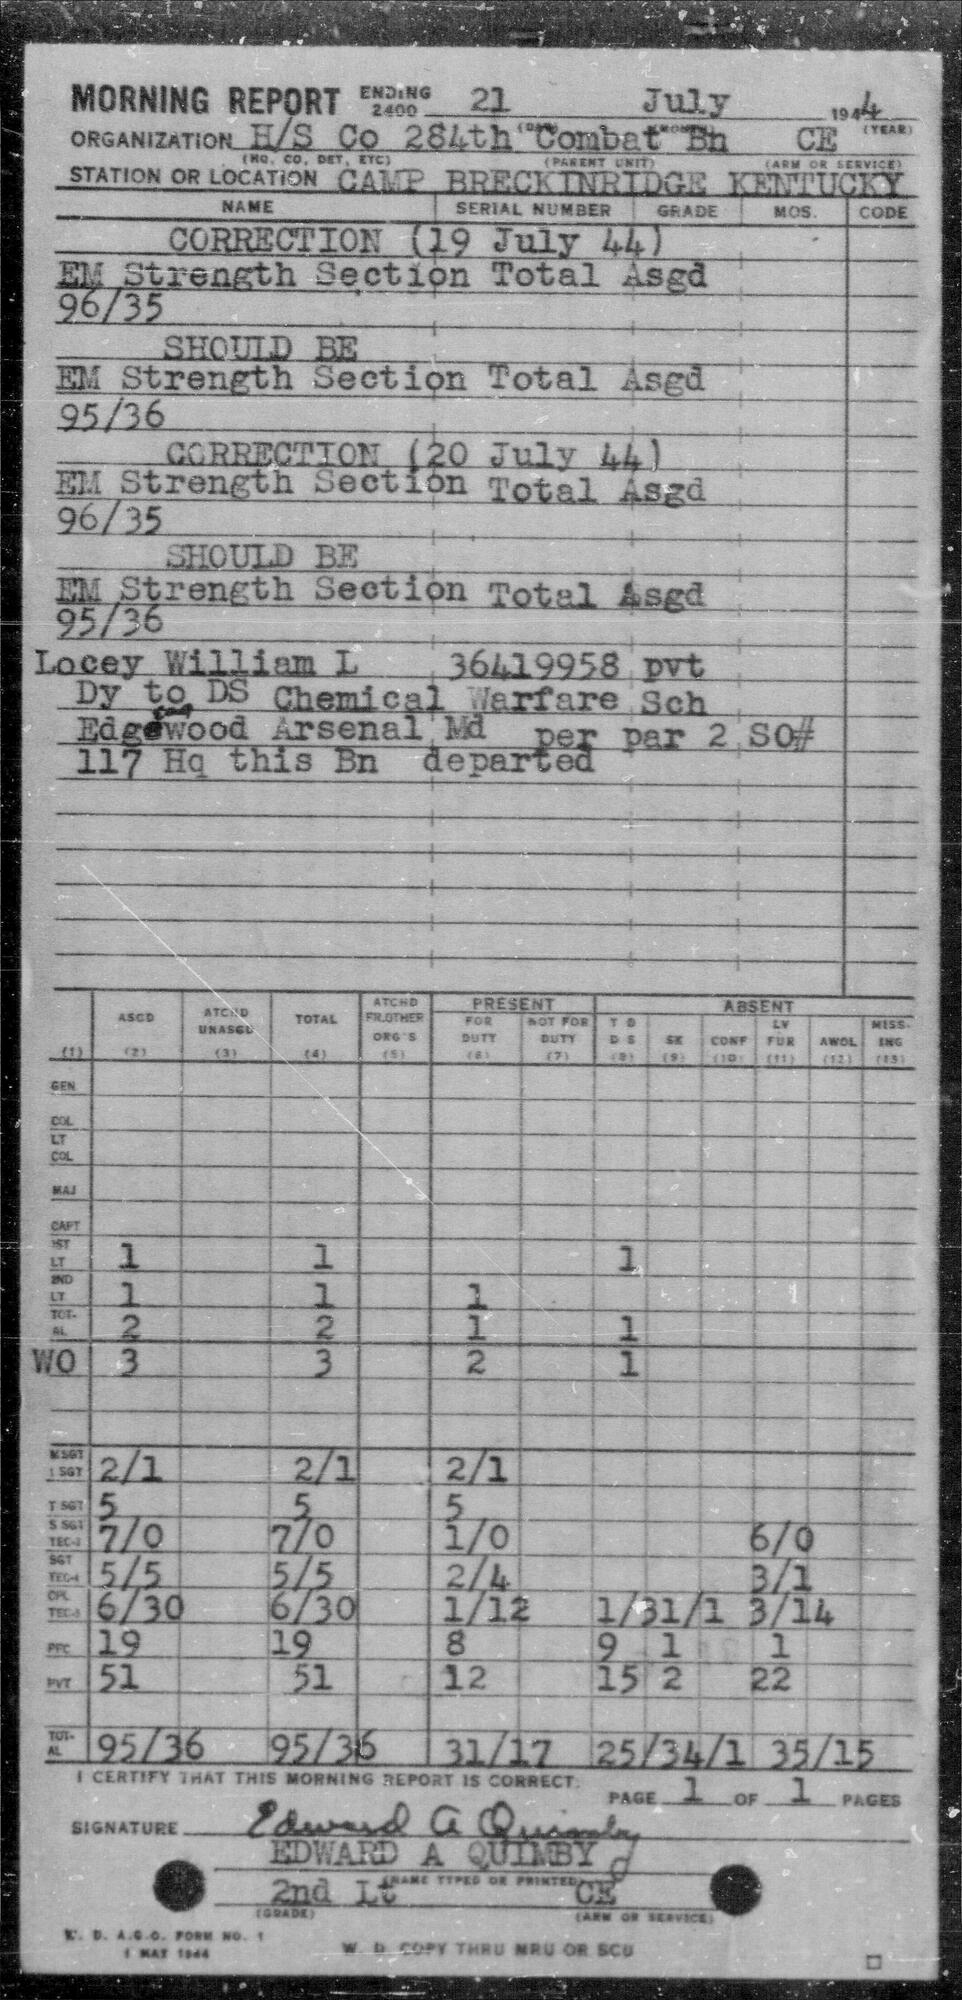 MORNING REPORT ENDING 2400 21 July 1944
(DAY) (MONTH) (YEAR)
ORGANIZATION H/S Co 284th Combat Bn CE
(HQ, CO, DET, ETC) (PARENT UNIT) (ARM OR SERVICE)
STATION OR LOCATION CAMP BRECKINRIDGE KENTUCKY
NAME SERIAL NUMBER GRADE MOS. CODE
CORRECTION (19 July 44)
EM Strength Section Total Asgd
96/35
SHOULD BE
EM Strength Section Total Asgd
95/36
CORRECTION (20 July 44)
EM Strength Section Total Asgd
96/35
SHOULD BE
EM Strength Section Total Asgd
95/36
Locey William L 36419958 pvt
Dy to DS Chemical Warfare Sch
Edgewood Arsenal Md per par 2 SO#
117 Hq this Bn departed
PRESENT ABSENT
(1) ASGD (2) ATCHD UNASGD (3) TOTAL (4) ATCHD FR.OTHER ORG'S (5) FOR DUTY (6) NOT FOR DUTY (7) T D D S (8) SK (9) CONF (10) LV FUR (11) AWOL (12) MISSING (13)
GEN
COL
LT COL
MAJ
CAPT
1ST LT 1 1 1
2ND LT 1 1 1
TOTAL 2 2 1 1
WO 3 3 2 1
M SGT 1 SGT 2/1 2/1 2/1
T SGT 5 5 5
S SGT TEC-3 7/0 7/0 1/0 6/0
SGT TEC-4 5/5 5/5 2/4 3/1
CPL TEC-5 6/30 6/30 1/12 1/31/1 3/14
PFC 19 19 8 9 1 1
PVT 51 51 12 15 2 22
TOTAL 95/36 95/36 31/17 25/34/1 35/15
I CERTIFY THAT THIS MORNING REPORT IS CORRECT.
PAGE 1 OF 1 PAGES
SIGNATURE Edward A Quimby
EDWARD A QUIMBY
(NAME TYPED OR PRINTED)
2nd Lt CE
(GRADE) (ARM OR SERVICE)
W. D. A.G.O. FORM NO. 1
1 MAY 1944
W. D. COPY THRU MRU OR SCU